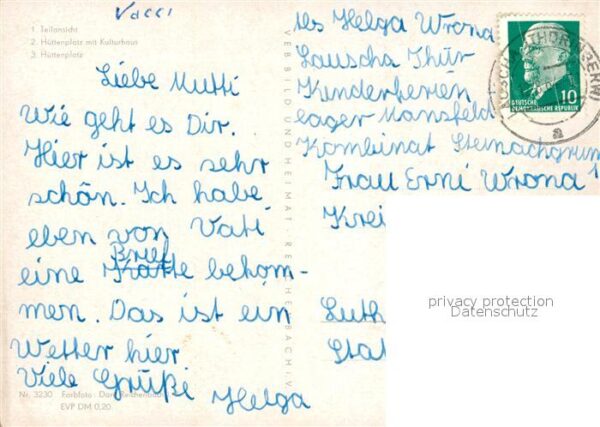 Vacci
1. Teilansicht
2. Hüttenplatz mit Kulturhaus
3. Hüttenplatz
Liebe Mutti
Wie geht es Dir.
Hier ist es sehr
schön. Ich habe
eben von Vati
Brief
eine Karte bekom-
men. Das ist ein
Wetter hier
Viele Grüße
Helga
Nr. 3230 Farbfoto: Darr Reichenbach
EVP DM 0,20
VERB BILD UND HEIMAT REICHENBACH i. V.
Helga Wrona
Lauscha Thür
Kinderferien
lager Mansfeld
Kombinat Steinachgrun
Frau Erni Wrona
Krei
Luth
Stat
DEUTSCHE
DEMOKRATISCHE REPUBLIK
10
LAUSCHA (THÜR WALD)
a
privacy protection
Datenschutz